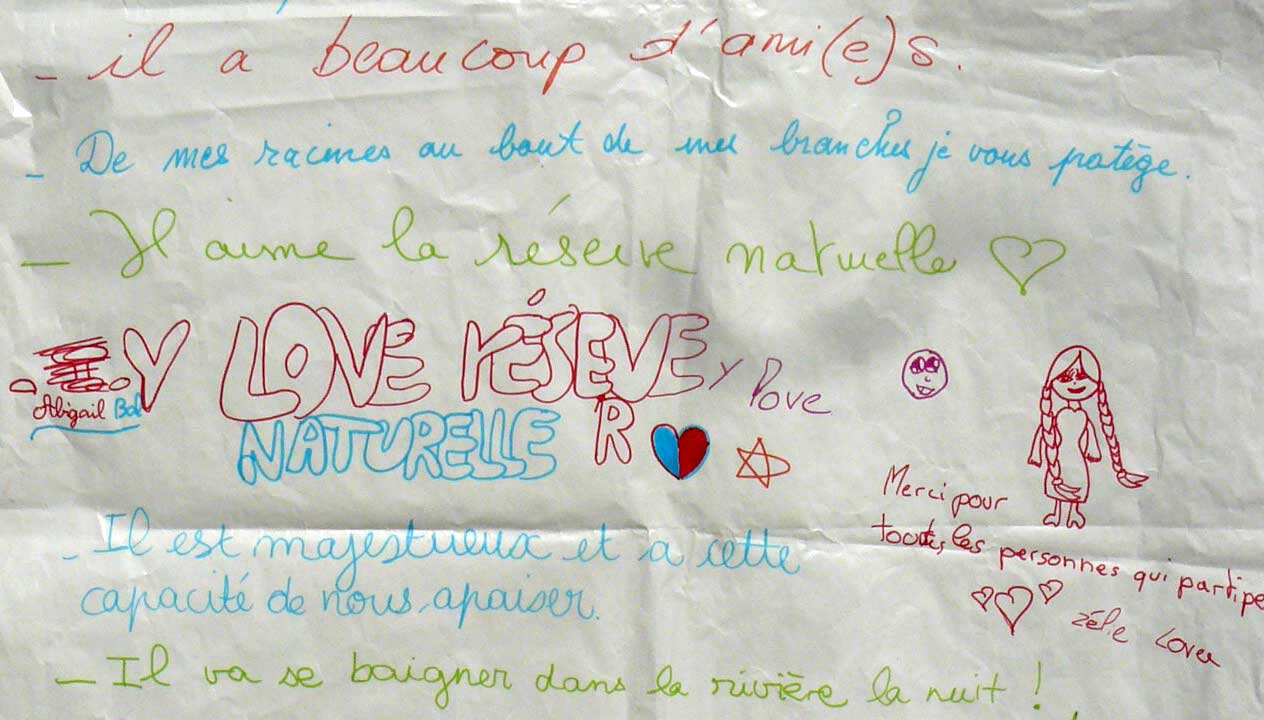 - il a beaucoup d'ami(e)s.
- De mes racines au bout de mes branches je vous protège.
- J'aime la réserve naturelle ♡
Y LOVE RÉSEVE
Y love
Abigail
NATURELLE R
Merci pour
toutes les personnes qui partipe
Zélie Lover
- Il est majestueux et a cette
capacité de nous apaiser.
- Il va se baigner dans la rivière la nuit !